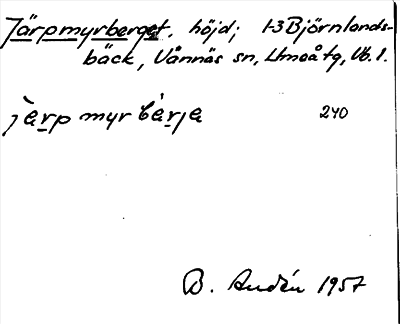 Järpmyrberget, höjd; 1-3 Björnlands-
bäck, Vännäs sn, Umeå tg, Vb. l.
järpmyrbärja 240
B. Audén 1957